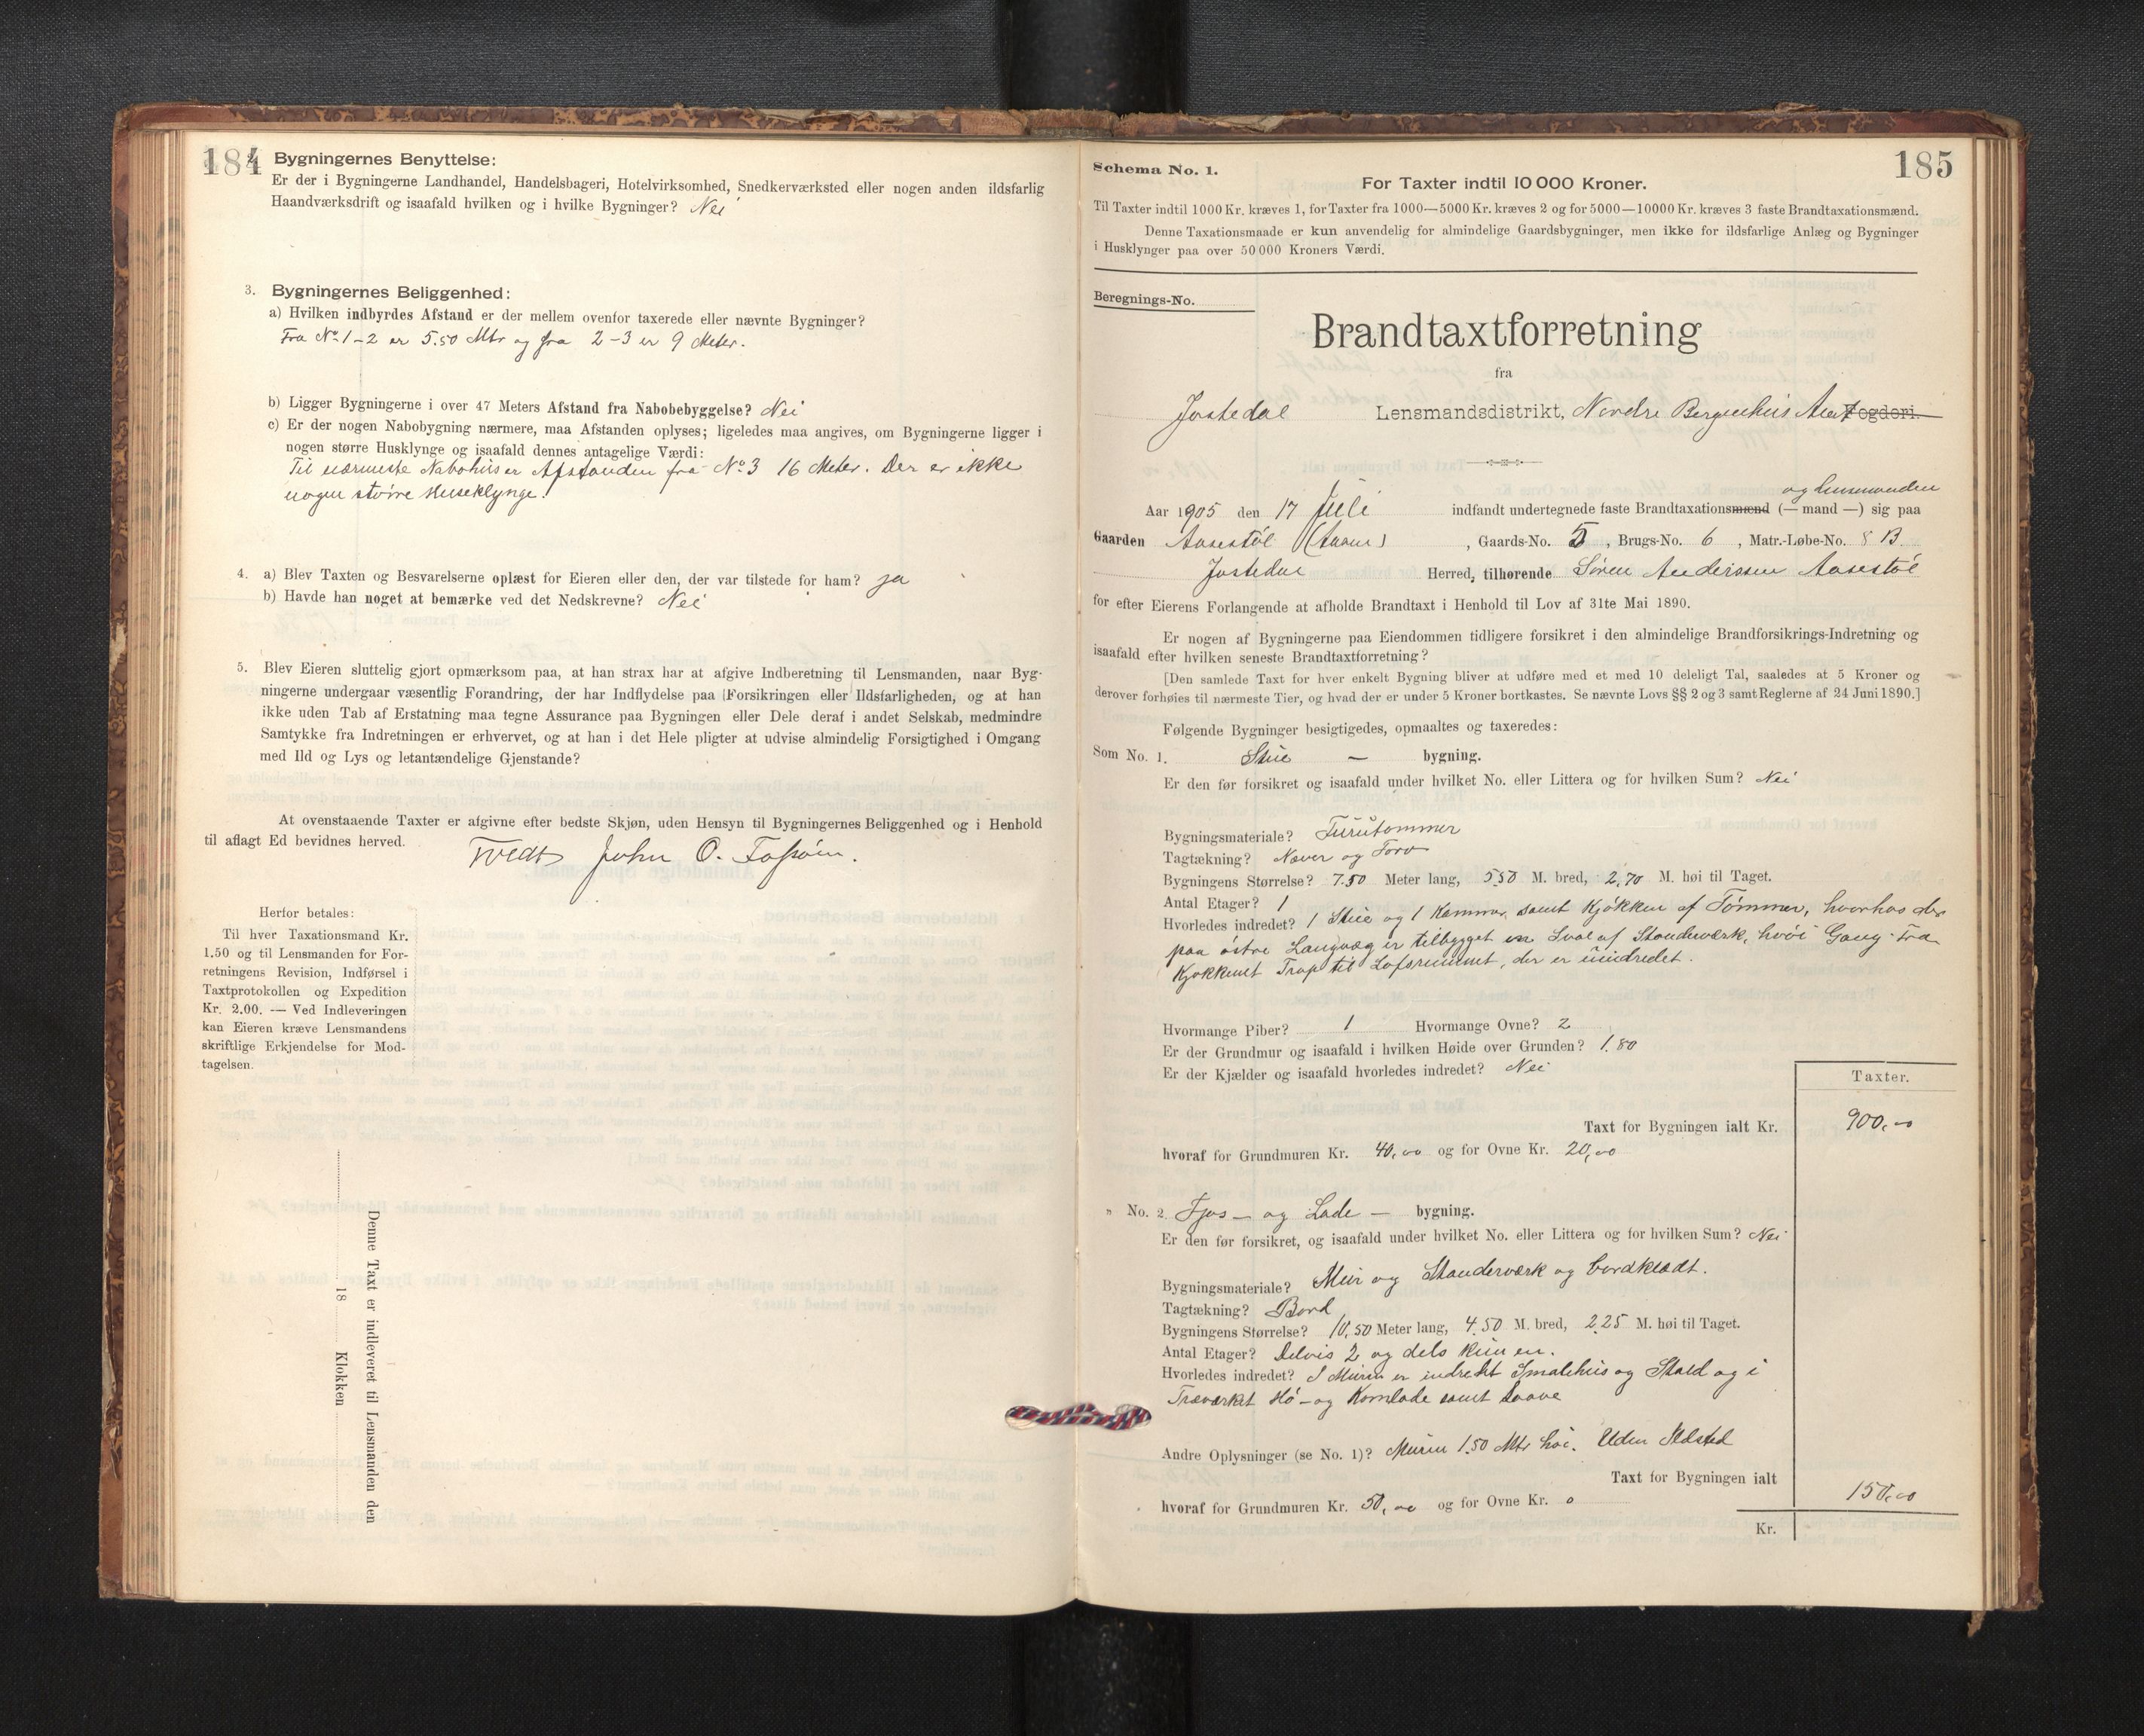 184
Bygningernes Benyttelse:
Er der i Bygningerne Landhandel, Handelsbageri, Hotelvirksomhed, Snedkerværksted eller nogen anden ildsfarlig
Haandværksdrift og isaafald hvilken og i hvilke Bygninger? Nei
3. Bygningernes Beliggenhed:
a) Hvilken indbyrdes Afstand er der mellem ovenfor taxerede eller nævnte Bygninger?
Fra No. 1-2 er 5.50 Mtr og fra 2-3 er 9 Meter.
b) Ligger Bygningerne i over 47 Meters Afstand fra Nabobebyggelse? Nei
c) Er der nogen Nabobygning nærmere, maa Afstanden oplyses; ligeledes maa angives, om Bygningerne ligger i
nogen større Husklynge og isaafald dennes antagelige Værdi:
Til nærmeste Nabohus er Afstanden fra No 3 16 Meter. Der er ikke
nogen større Huseklynge.
4. a) Blev Taxten og Besvarelserne oplæst for Eieren eller den, der var tilstede for ham? ja
b) Havde han noget at bemærke ved det Nedskrevne? Nei
5. Blev Eieren sluttelig gjort opmærksom paa, at han strax har at afgive Indberetning til Lensmanden, naar Byg-
ningerne undergaar væsentlig Forandring, der har Indflydelse paa Forsikringen eller Ildsfarligheden, og at han
ikke uden Tab af Erstatning maa tegne Assurance paa Bygningen eller Dele deraf i andet Selskab, medmindre
Samtykke fra Indretningen er erhvervet, og at han i det Hele pligter at udvise almindelig Forsigtighed i Omgang
med Ild og Lys og letantændelige Gjenstande?
At ovenstaaende Taxter er afgivne efter bedste Skjøn, uden Hensyn til Bygningernes Beliggenhed og i Henhold
til aflagt Ed bevidnes herved.
John O.
Herfor betales:
Til hver Taxationsmand Kr.
1.50 og til Lensmanden for For-
retningens Revision, Indførsel i
Taxtprotokollen og Expedition
Kr. 2.00. — Ved Indleveringen
kan Eieren kræve Lensmandens
skriftlige Erkjendelse for Mod-
tagelsen.
Denne Taxt er indleveret til Lensmanden den
18 Klokken
185
Schema No. 1.
For Taxter indtil 10 000 Kroner.
Til Taxter indtil 1000 Kr. kræves 1, for Taxter fra 1000—5000 Kr. kræves 2 og for 5000—10000 Kr. kræves 3 faste Brandtaxationsmænd.
Denne Taxationsmaade er kun anvendelig for almindelige Gaardsbygninger, men ikke for ildsfarlige Anlæg og Bygninger
i Husklynger paa over 50 000 Kroners Værdi.
Beregnings-No.
Brandtaxtforretning
fra
Jostedal Lensmandsdistrikt, Nordre Bergenhus Amt Fogderi.
og lensmanden
Aar 1905 den 17 Juli indfandt undertegnede faste Brandtaxationsmænd (— mand —) sig paa
Gaarden Aasestøl , Gaards-No. 5 , Brugs-No. 6 , Matr.-Løbe-No. 8 B
Jostedal Herred, tilhørende Søren Anderssen Aasestøl
for efter Eierens Forlangende at afholde Brandtaxt i Henhold til Lov af 31te Mai 1890.
Er nogen af Bygningerne paa Eiendommen tidligere forsikret i den almindelige Brandforsikrings-Indretning og
isaafald efter hvilken seneste Brandtaxtforretning?
[Den samlede Taxt for hver enkelt Bygning bliver at udføre med et med 10 deleligt Tal, saaledes at 5 Kroner og
derover forhøies til nærmeste Tier, og hvad der er under 5 Kroner bortkastes. Se nævnte Lovs §§ 2 og 3 samt Reglerne af 24 Juni 1890.]
Følgende Bygninger besigtigedes, opmaaltes og taxeredes:
Som No. 1. Stue — bygning.
Er den før forsikret og isaafald under hvilket No. eller Littera og for hvilken Sum? Nei
Bygningsmateriale? Furutømmer
Tagtækning? Næver og Torv
Bygningens Størrelse? 7.50 Meter lang, 5.50 M. bred, 2.70 M. høi til Taget.
Antal Etager? 1
Hvorledes indredet? 1 Stue og 1 Kammer, samt Kjøkken af Tømmer, hvorhos der
paa østre Langvæg er tilbygget en Sval af Standerværk, hvori Gang. Fra
Kjøkkenet Trap til Loftsrummet, der er uindredet.
Hvormange Piber? 1 Hvormange Ovne? 2
Er der Grundmur og isaafald i hvilken Høide over Grunden? 1.80
Er der Kjælder og isaafald hvorledes indredet? Nei
Taxter.
Taxt for Bygningen ialt Kr. 900,00
hvoraf for Grundmuren Kr. 40,00 og for Ovne Kr. 20,00
" No. 2. Fjøs — og Lade — bygning.
Er den før forsikret, og isaafald under hvilket No. eller Littera og for hvilken Sum? Nei
Bygningsmateriale? Mur og Standerværk og bordklædt.
Tagtækning? Bord
Bygningens Størrelse? 10,50 Meter lang, 4.50 M. bred, 2.25 M. høi til Taget.
Antal Etager? Delvis 2 og dels kun en.
Hvorledes indredet? I Muren er indredet Smalehus og Stald og i
Træværket Hø- og Kornlade samt Laave
Andre Oplysninger (se No. 1)? Muren 1.50 Mtr høi. Uden Ildsted
Taxt for Bygningen ialt 150,00
hvoraf for Grundmuren Kr. 50,00 og for Ovne Kr. 0
Kr.